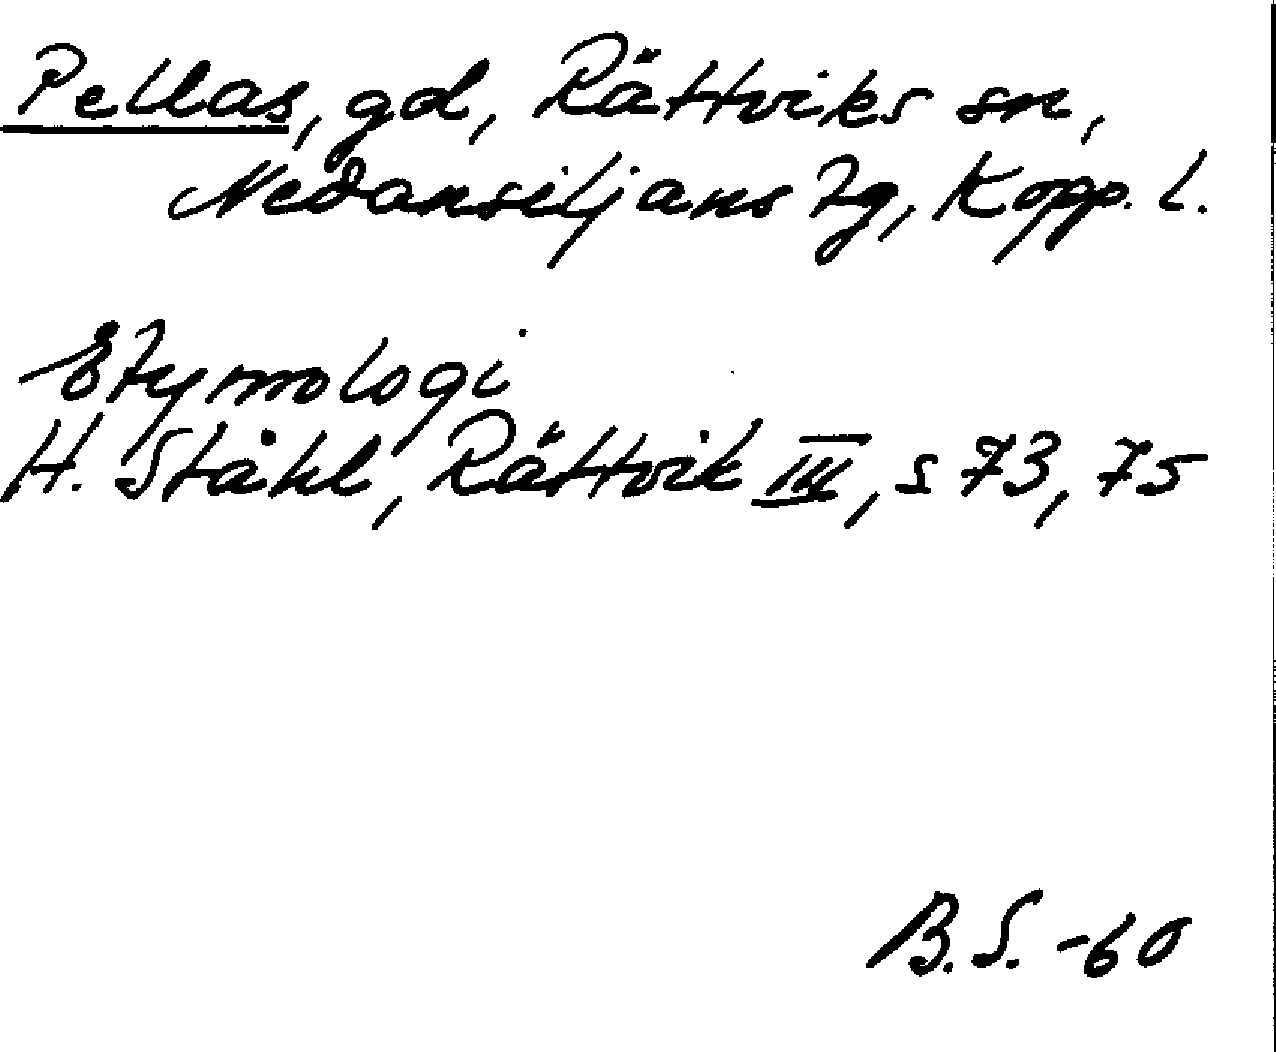 Pellas, gd, Rättviks sn,
Nedansiljans tg, Kopp. l.
Etymologi
H. Ståhl, Rättvik III, s 73, 75
B.S. -60